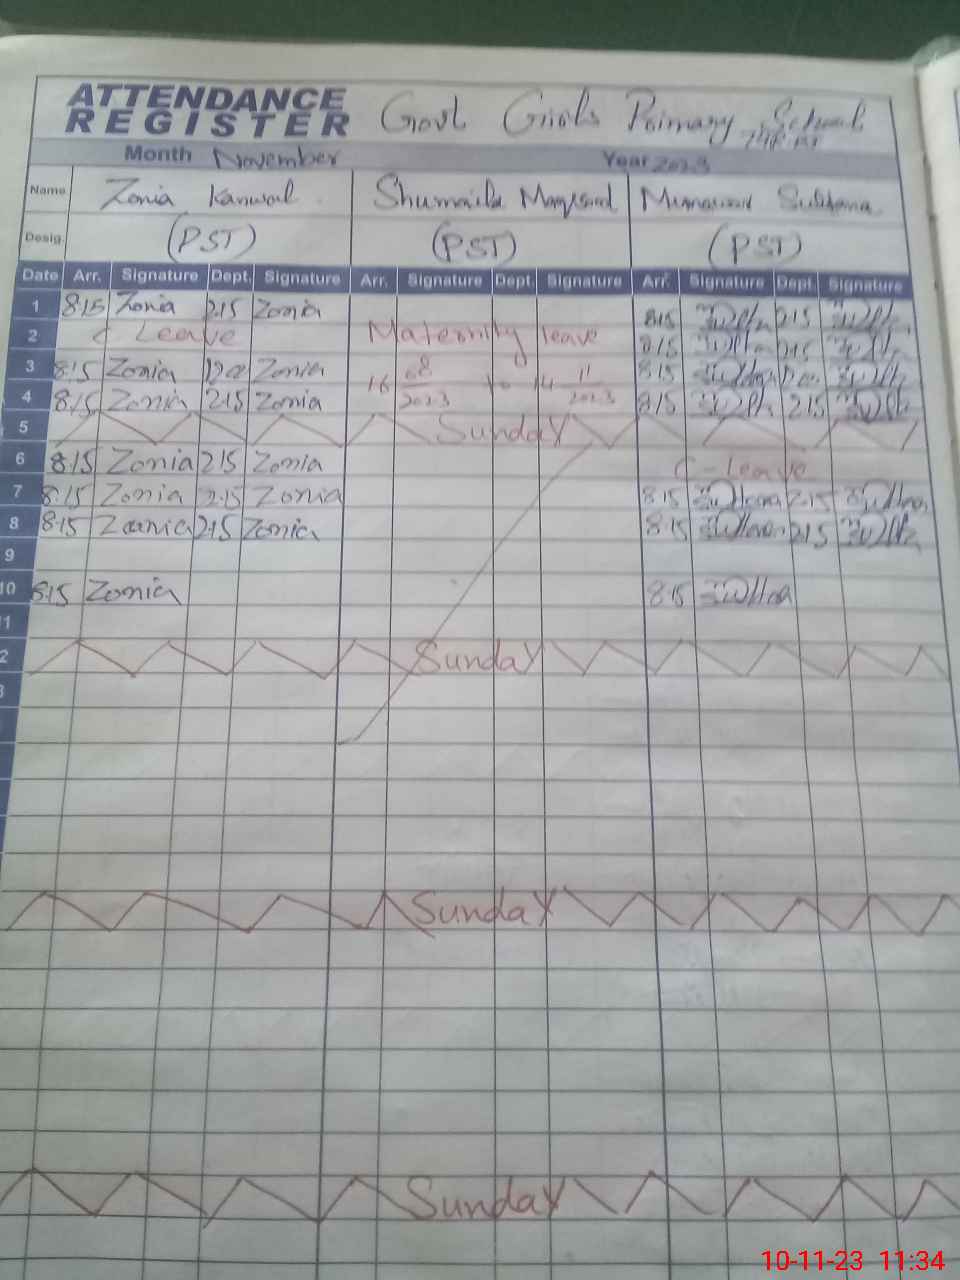 ATTENDANCE REGISTER Govt Girls Primary School
Month November Year 2023
Name Zonia Kanwal Shumaila Maqsood Munawar Sultana
Desig. (PST) (PST) (PST)
Date Arr. Signature Dept. Signature Arr. Signature Dept. Signature Arr. Signature Dept. Signature
1 8:15 Zonia 2:15 Zonia 8:15 2:15
2 C Leave Maternity leave 8:15 2:15
3 8:15 Zonia Zonia 16 08/2023 to 14 11/2023 8:15
4 8:15 Zonia 2:15 Zonia 8:15 2:15
5 Sunday
6 8:15 Zonia 2:15 Zonia C-leave
7 8:15 Zonia 2:15 Zonia 8:15 2:15
8 8:15 Zonia 2:15 Zonia 8:15 2:15
9
10 8:15 Zonia 8:15
11
2 Sunday
3
Sunday
Sunday
10-11-23 11:34